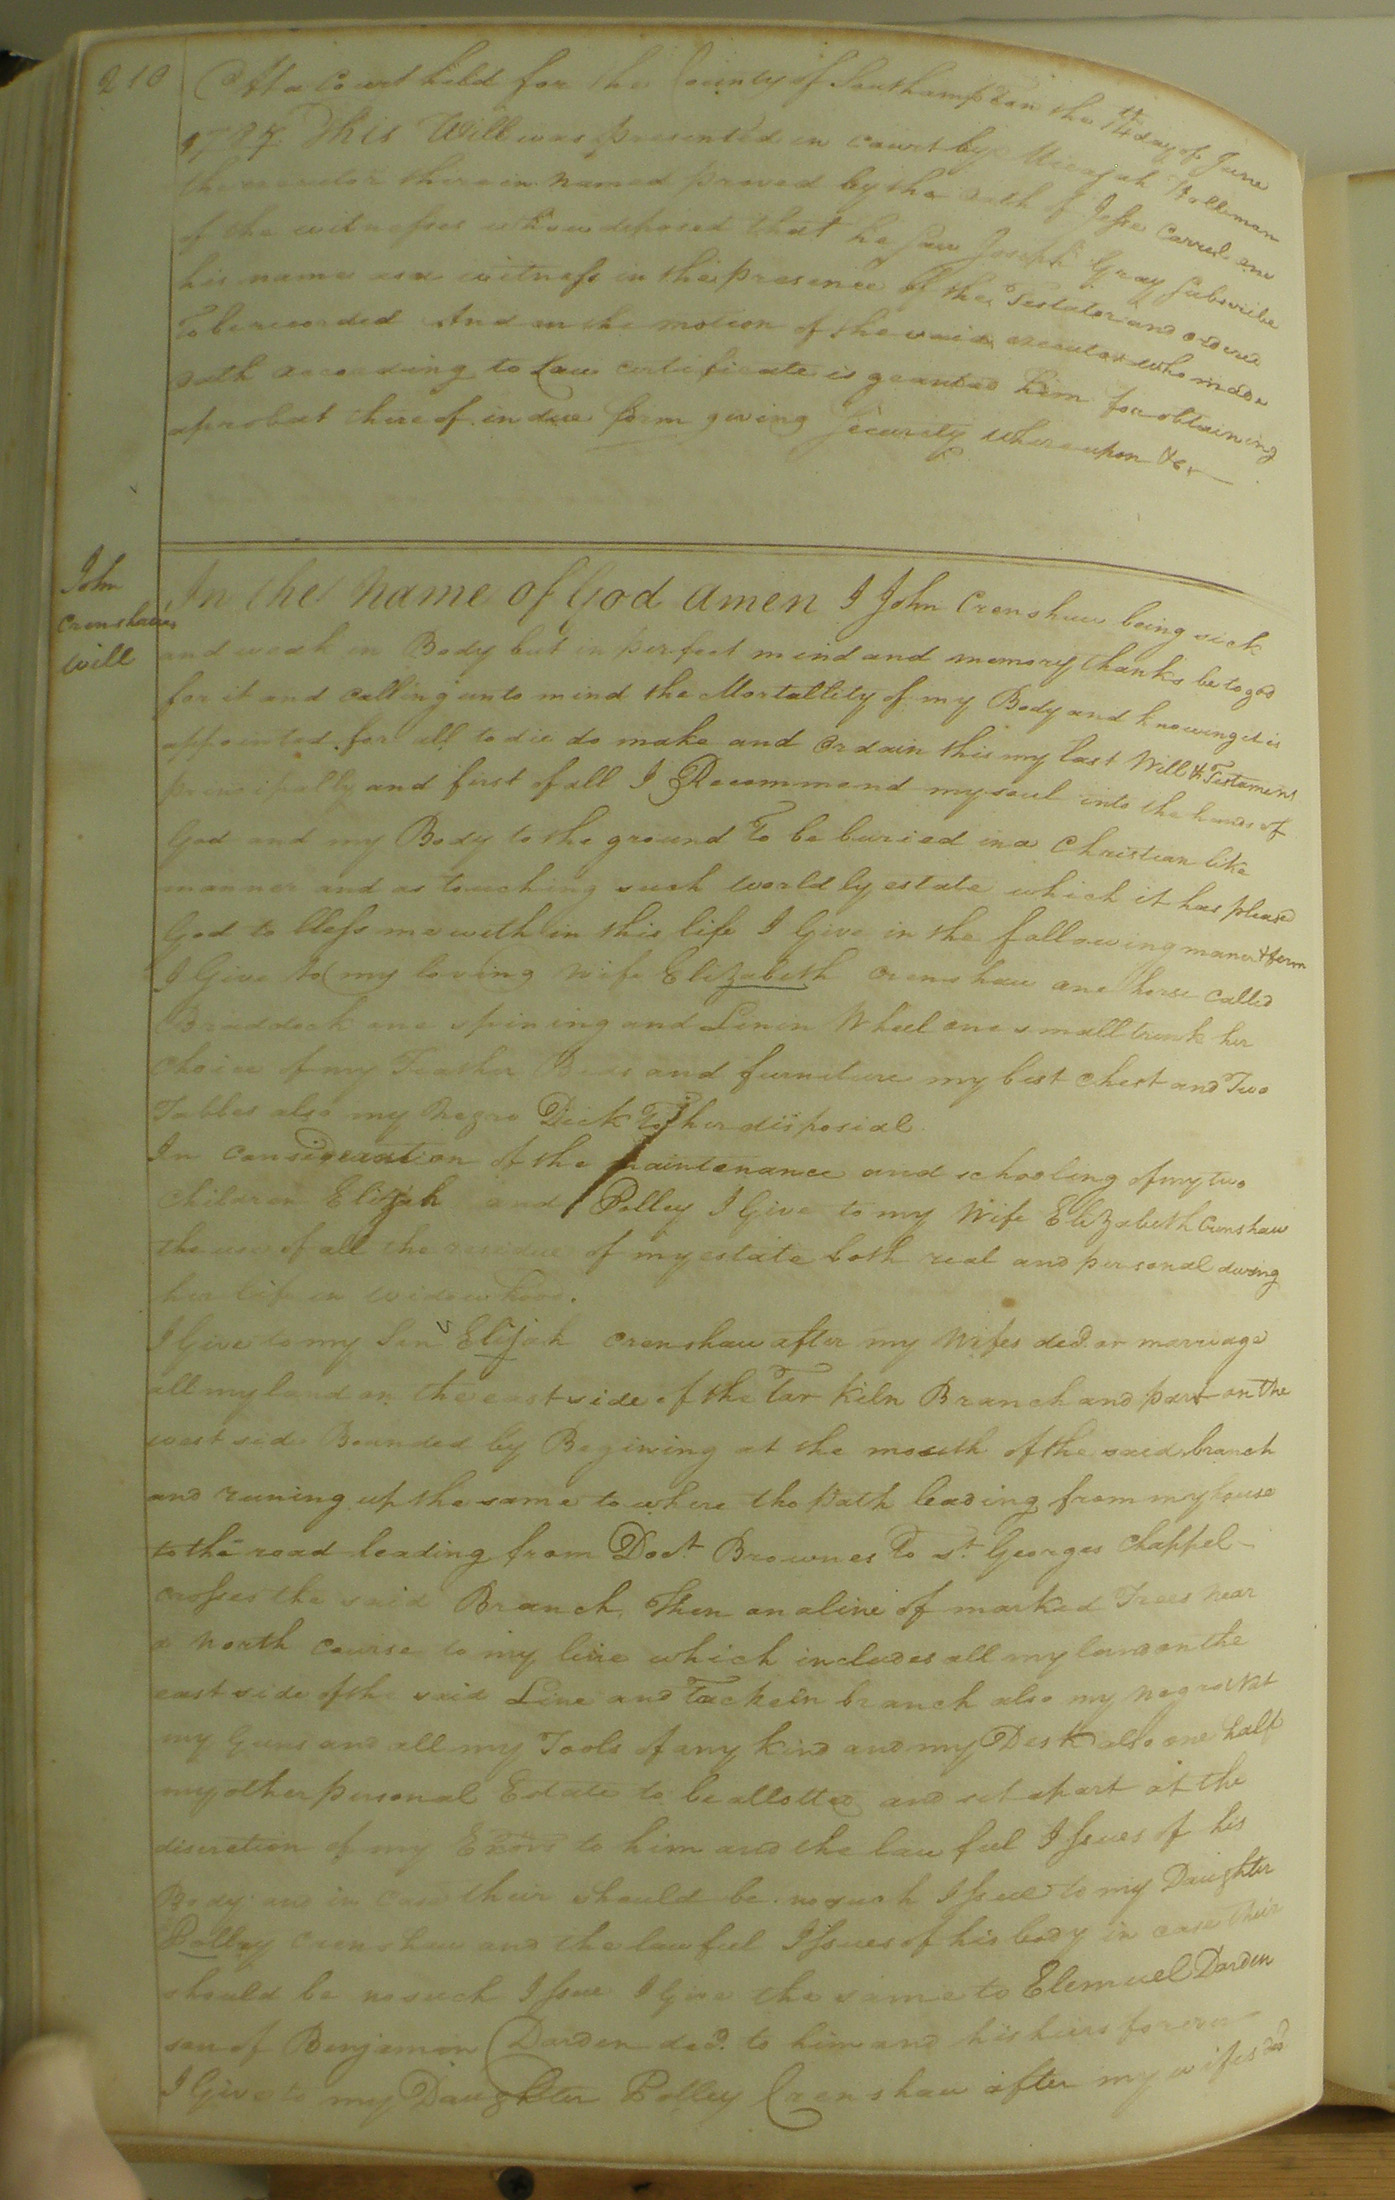 210
At a Court held for the County of Southampton the 14th day of June
This Will was presented in court by Micajah Holleman
the executor therein named proved by the oath of Jesse Carrel one
of the witnesses who deposed that he saw Joseph Gray subscribe
his name as a witness in the presence of the Testator and ordered
To be recorded And on the motion of the said executor who made
oath according to Law certificate is granted him for obtaining
a probat there of in due form giving Security whereupon &c
John
Crenshaws
Will
In the name of God amen I John Crenshaw being sick
and weak in Body but in perfect mind and memory thanks be to god
for it and calling unto mind the Mortallity of my Body and knowing it is
appointed for all to die do make and ordain this my last Will & Testament
principally and first of all I Recommend my soul into the hands of
God and my Body to the ground To be buried in a Christian like
manner and as touching such worldly estate which it has pleased
God to bless me with in this life I Give in the following maner & form
I Give to my loving wife Elizabeth Crenshaw one horse called
Braddock one spining and Linin Wheel one small trunk her
choice of my Feather Beds and furniture my best chest and Two
Tables also my Negro Dick To her disposial
In consideration of the maintenance and schooling of my two
children Elijah and Polley I Give to my Wife Elizabeth Crenshaw
the use of all the residue of my estate both real and personal during
her life or widowhood.
I Give to my Son Elijah Crenshaw after my Wifes ded. or marriage
all my land on the east side of the Tar Kiln Branch and part on the
west sid Bounded by Begining at the mouth of the said branch
and runing up the same to where the path leading from my house
to the road leading from Doct. Brownes To St. Georges Chappel
crosses the said Branch, Then on a line of marked Trees near
a North course to my line which includes all my land on the
east side of the said Line and Tackeln branch also my negro Nat
my Guns and all my Tools of any kind and my Desk also one half
my other personal Estate to be allotted and set apart at the
discretion of my Exors to him and the lawful Issues of his
Body and in case thear should be no such Issue to my Daughter
Polley Crenshaw and the lawful Issues of his body in case their
should be no such Issue I Give the same to Elemuel Darden
son of Benjamin Darden ded. to him and his heirs forever
I Give to my Daughter Polley Crenshaw after my wifes ded